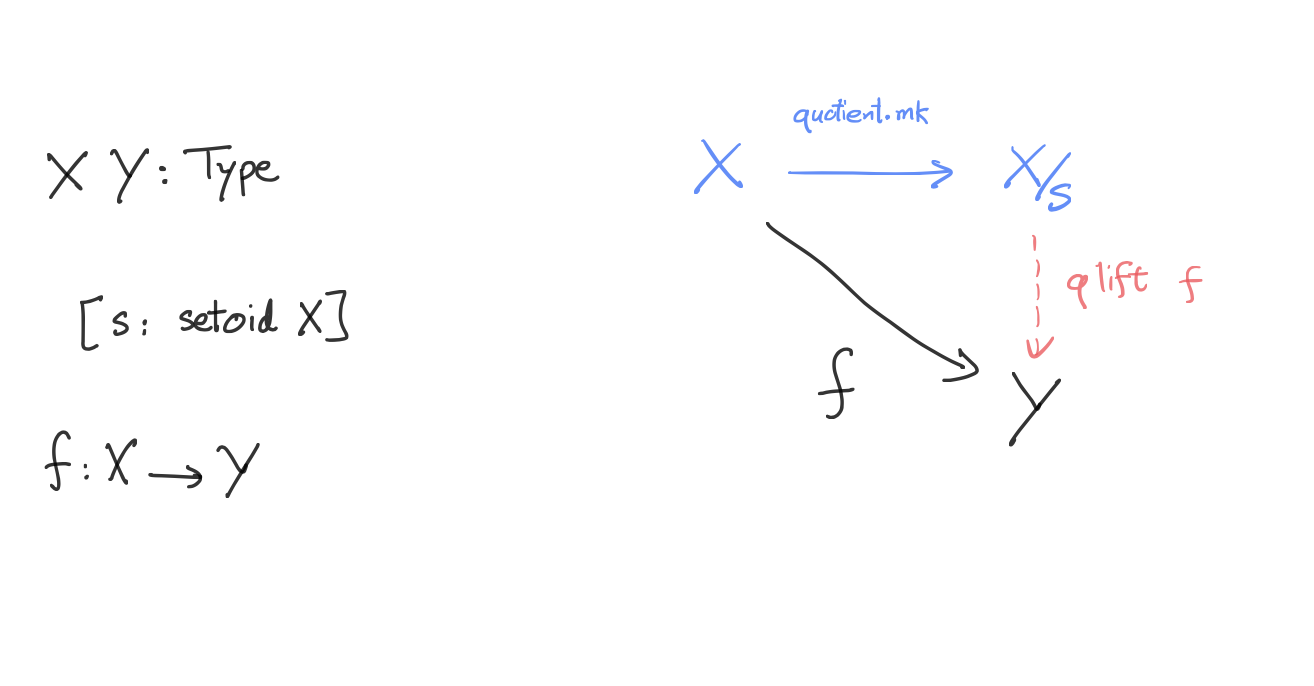 X Y : Type
[s : setoid X]
f : X → Y
quotient.mk
X → X/s
qlift f
f
Y